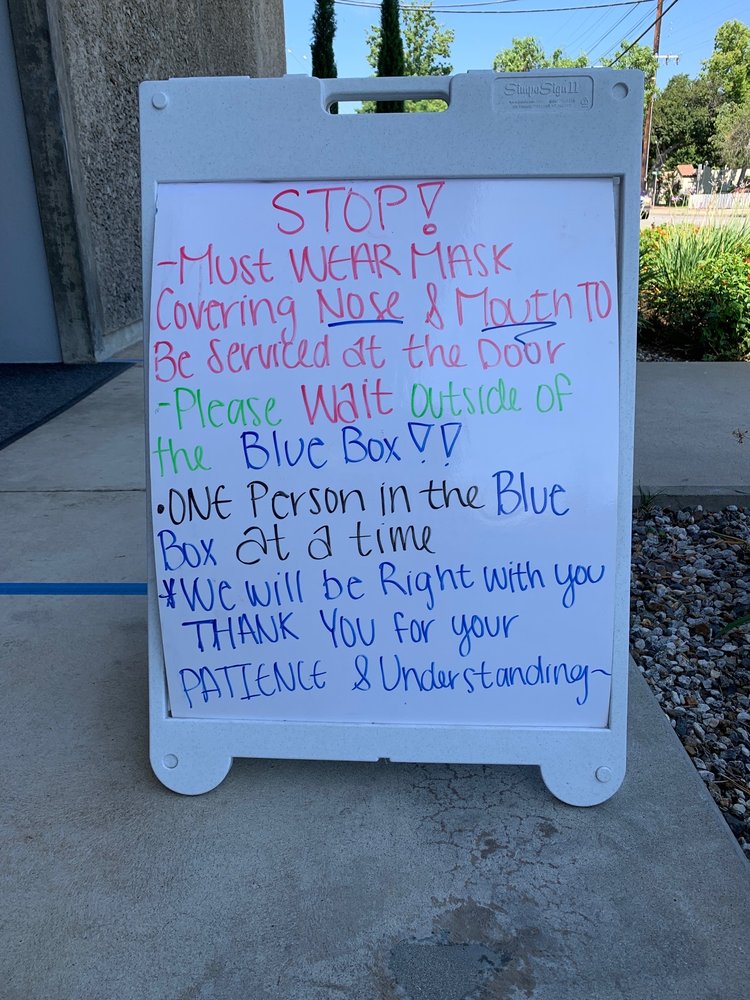 SimpoSign II
STOP!
-Must WEAR MASK
Covering Nose & Mouth TO
Be Serviced at the Door
-Please Wait Outside of
the Blue Box!!
•ONE Person in the Blue
Box at a time
*We will be Right with you
THANK YOU for your
PATIENCE & Understanding~